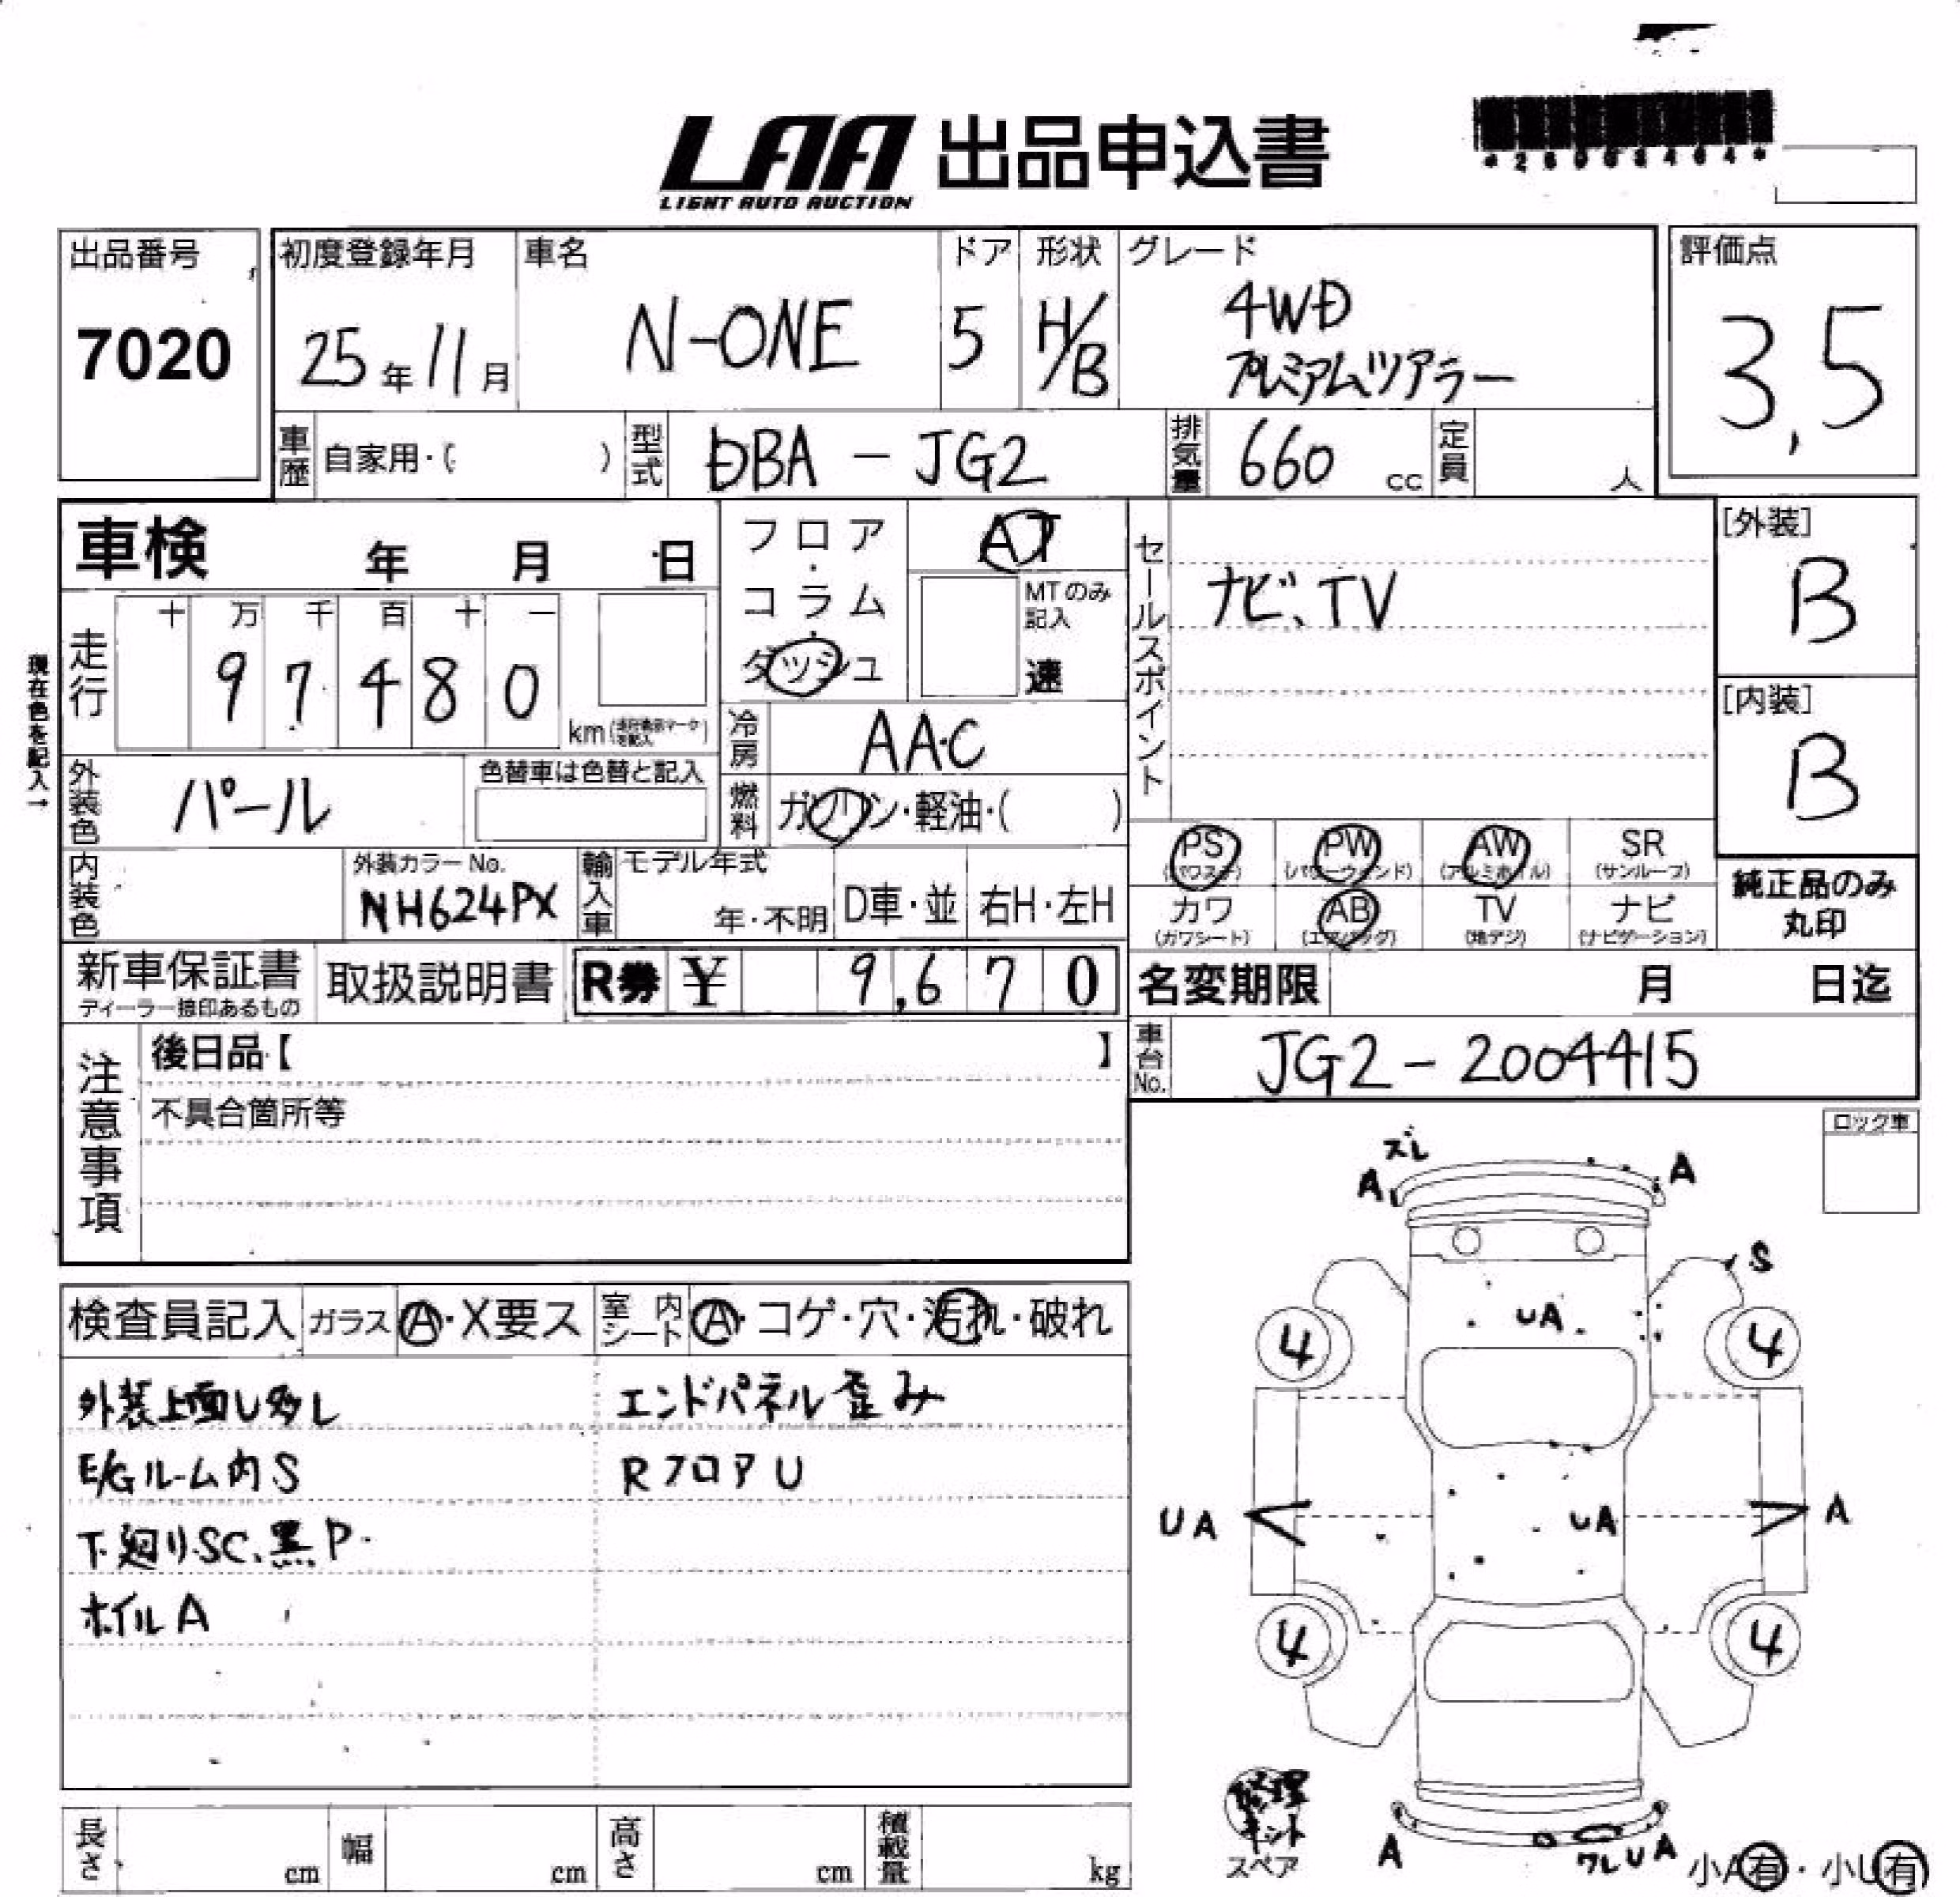 LAA 出品申込書
LIGHT AUTO AUCTION
出品番号
7020
初度登録年月
25年11月
車名
N-ONE
ドア
5
形状
H/B
グレード
4WD
プレミアムツアラー
評価点
3,5
車歴
自家用・( )
型式
DBA - JG2
排気量
660 cc
定員
人
車検 年 月 日
フロア・コラム・ダッシュ
AT
MTのみ記入
速
セールスポイント
ナビ、TV
[外装]
B
[内装]
B
現在色を記入→
走行
十 万 千 百 十 一
9 7 4 8 0
km
冷房
AAC
燃料
ガソリン・軽油・( )
外装色
パール
色替車は色替と記入
内装色
外装カラーNo.
NH624PX
輸入車
モデル年式
年・不明
D車・並
右H・左H
PS
(パワステ)
PW
(パワーウィンド)
AW
(アルミホイル)
SR
(サンルーフ)
カワ
(カワシート)
AB
(エアバッグ)
TV
(地デジ)
ナビ
(ナビゲーション)
純正品のみ
丸印
新車保証書
ディーラー捺印あるもの
取扱説明書
R券 ¥ 9,670
名変期限 月 日迄
車台No.
JG2-2004415
注意事項
後日品【 】
不具合箇所等
ロック車
検査員記入
ガラス
A・X要ス
室内シート
A・コゲ・穴・汚れ・破れ
外装上面U多し
E/Gルーム内S
下廻りSC、黒P
ホイルA
エンドパネル歪み
RフロアU
ズレ
A
A
S
UA
4
4
UA
UA
A
4
4
修理
キット
スペア
A
ワレUA
小A有・小U有
長さ cm
幅 cm
高さ cm
積載量 kg